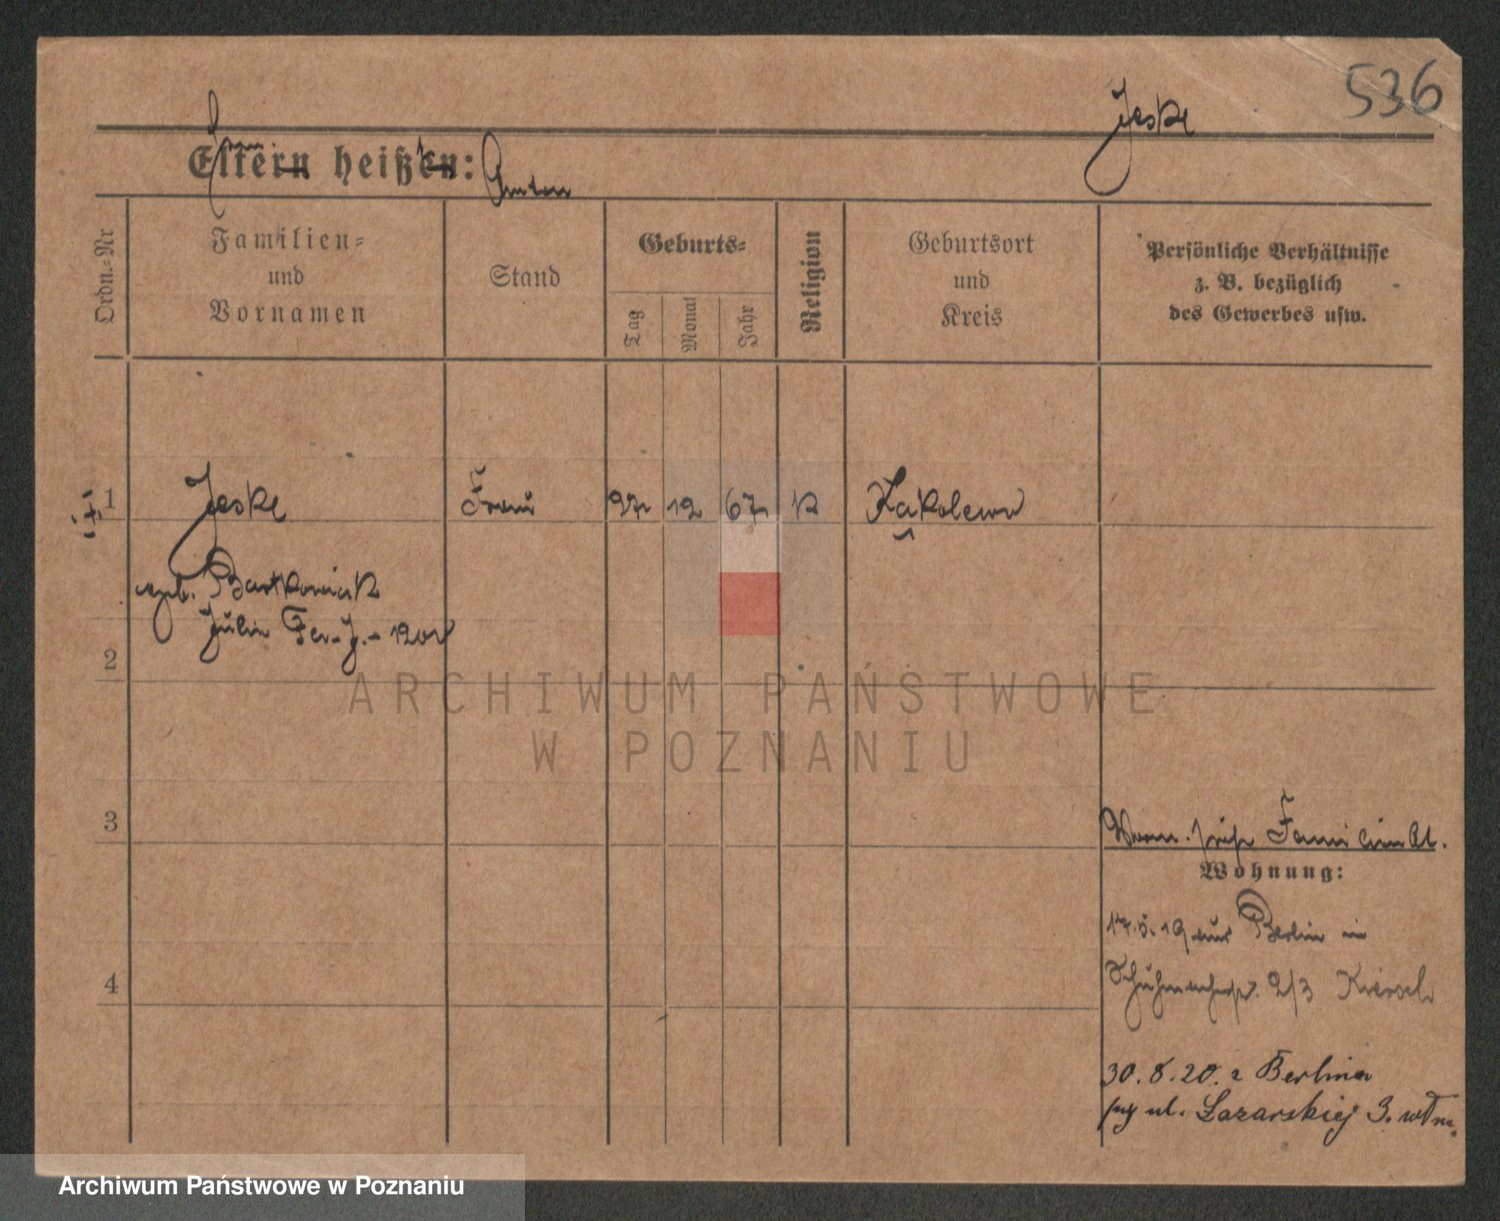 536
Jeske
Eltern heißen:
Ordn.-Nr
Familien-
und
Vornamen
Stand
Geburts-
Tag
Monat
Jahr
Religion
Geburtsort
und
Kreis
Persönliche Verhältnisse
z. B. bezüglich
des Gewerbes usw.
1 Jeske Frau 27 12 67 K Kąkolewo
geb. Bartkowiak
2
ARCHIWUM PAŃSTWOWE
W POZNANIU
3
Wohnung:
17.5.19 aus Berlin in
4
30.8.20. z Berlina
przy ul. Łazarskiej 3.
Archiwum Państwowe w Poznaniu